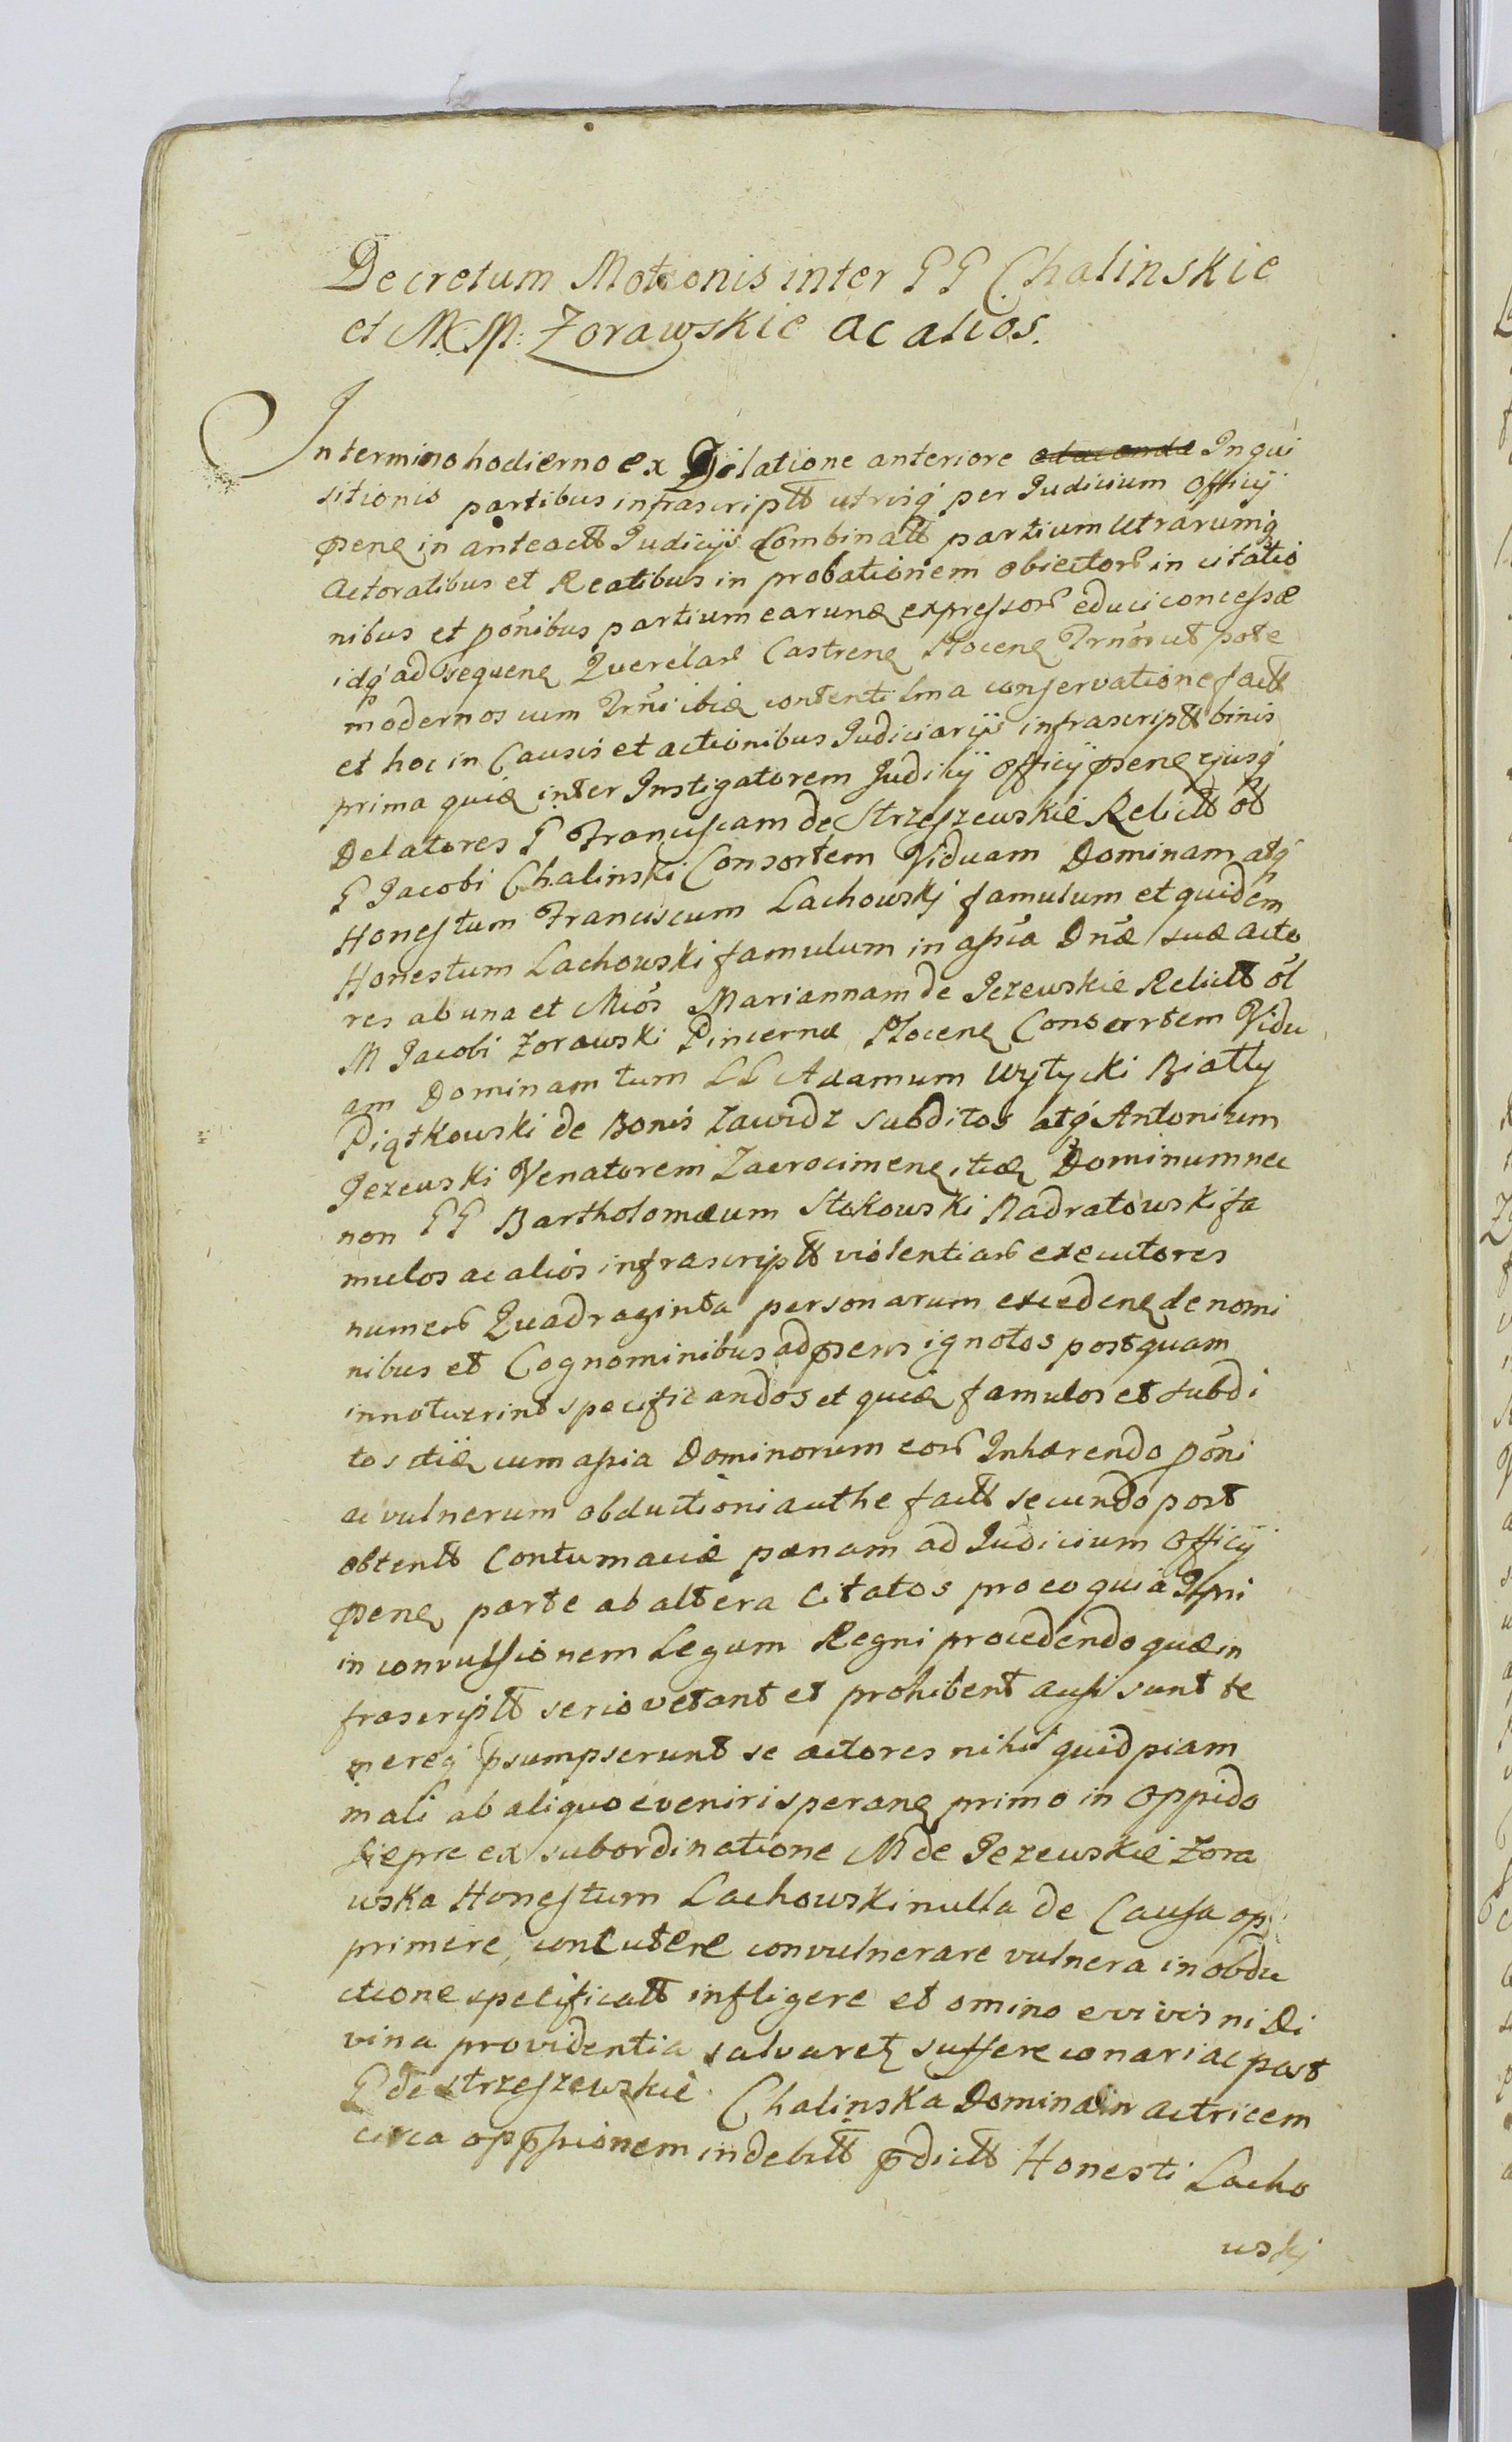 Decretum Motionis inter GG Chalinskie
et M:M: Zorawskie ac alios.
In termino hodierno ex Dilatione anteriore Inqui
sitionis partibus infrascriptt utrisq per Judicium Officij
psens in anteactt Judicijs Combinatt partium Utrarumq
Actoratibus et Reatibus in probationem obiector in citatio
nibus et ponibus partium earund expressor educi concessæ
idq ad sequens Querelar Castrens Plocens Trnor ut pote
modernos cum Trni ibid contenti lma conservatione factt
et hoc in Causis et actionibus Judiciarijs infrascriptt binis
prima quid inter Instigatorem Judicij Officij psens ejusq
Delatores G Franciscam de Strzeszewskie Relictt ol
G Jacobi Chalinski Consortem Viduam Dominam atq
Honestum Franciscum Lachowskj famulum et quidem
Honestum Lachowski famulum in assia Dnæ suæ acto
res ab una et Mcos Mariannam de Jezewskie Relictt ol
M Jacobi Zorawski Pincernæ Plocens Consortem Vidu
am Dominam tum LL Adamum Wytycki Biatty
Piątkowski de Bonis Zawidz subditos atq Antonium
Jezewski Venatorem Zacrocimens itid Dominum nec
non GG Bartholomæum Stokowski Nadratowski fa
mulos ac alios infrascriptt violentiar executores
numer Quadraginta personarum excedens de nomi
nibus et Cognominibus ad psens ignotos postquam
innotuerint specificandos et quid famulos et subdi
tos cum assia Dominorum eor Inhærendo poni
ac vulnerum obductioni authe factt secundo post
obtentt Contumaciæ pænam ad Judicium Officij
psens parte ab altera Citatos pro eo quia Ipsi
in convulsionem Legum Regni procedendo quæ in
frascriptt serio vetant et prohibent ausi sunt te
mereq psumpserunt se actores nihil quidpiam
mali ab aliquo eveniri sperans primo in Oppido
Sieprc ex subordinatione M de Jezewskie Zora
wska Honestum Lachowski nulla de Causa op
primere, concutere convulnerare vulnera in obdu
ctione specificatt infligere et omino e vivis ni Di
vina providentia salvaret suffere conari ac post
G de Strzeszewskie Chalinska Dominam actricem
circa oppssionem indebitt pdictt Honesti Lacho
wskj